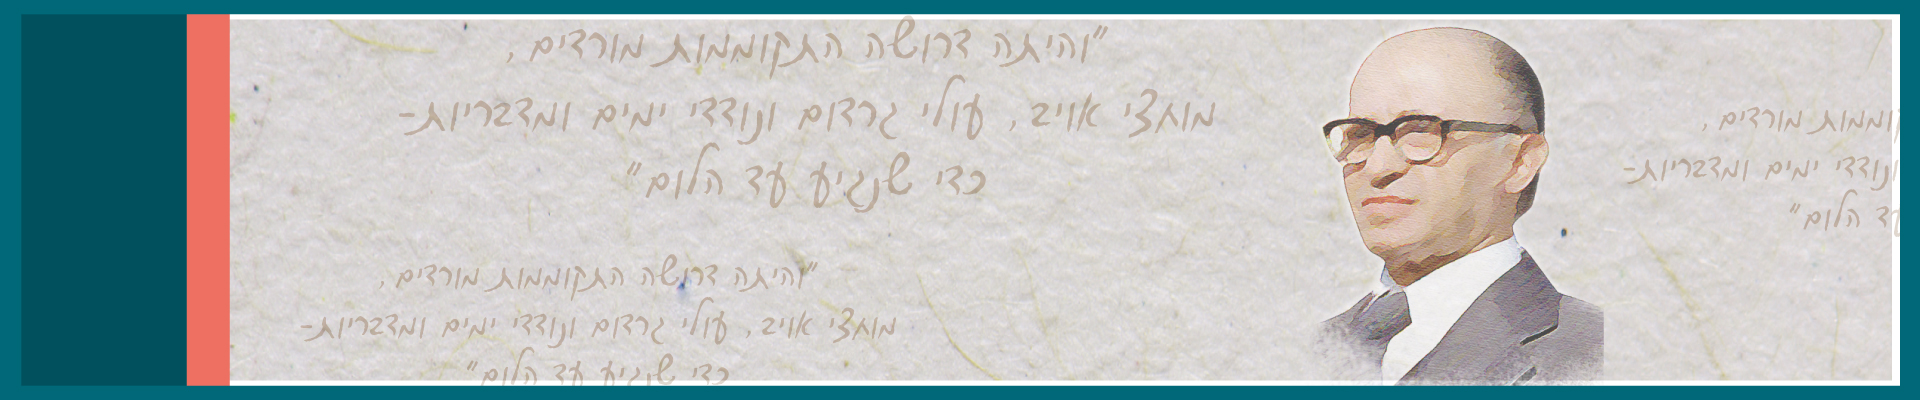 "והיתה דרושה התקוממות מורדים,
מוחצי אויב, עולי גרדום ונודדי ימים ומדבריות-
כדי שנגיע עד הלום"
"והיתה דרושה התקוממות מורדים,
מוחצי אויב, עולי גרדום ונודדי ימים ומדבריות-
כדי שנגיע עד הלום"
מורדים,
ונודדי ימים ומדבריות-
עד הלום"